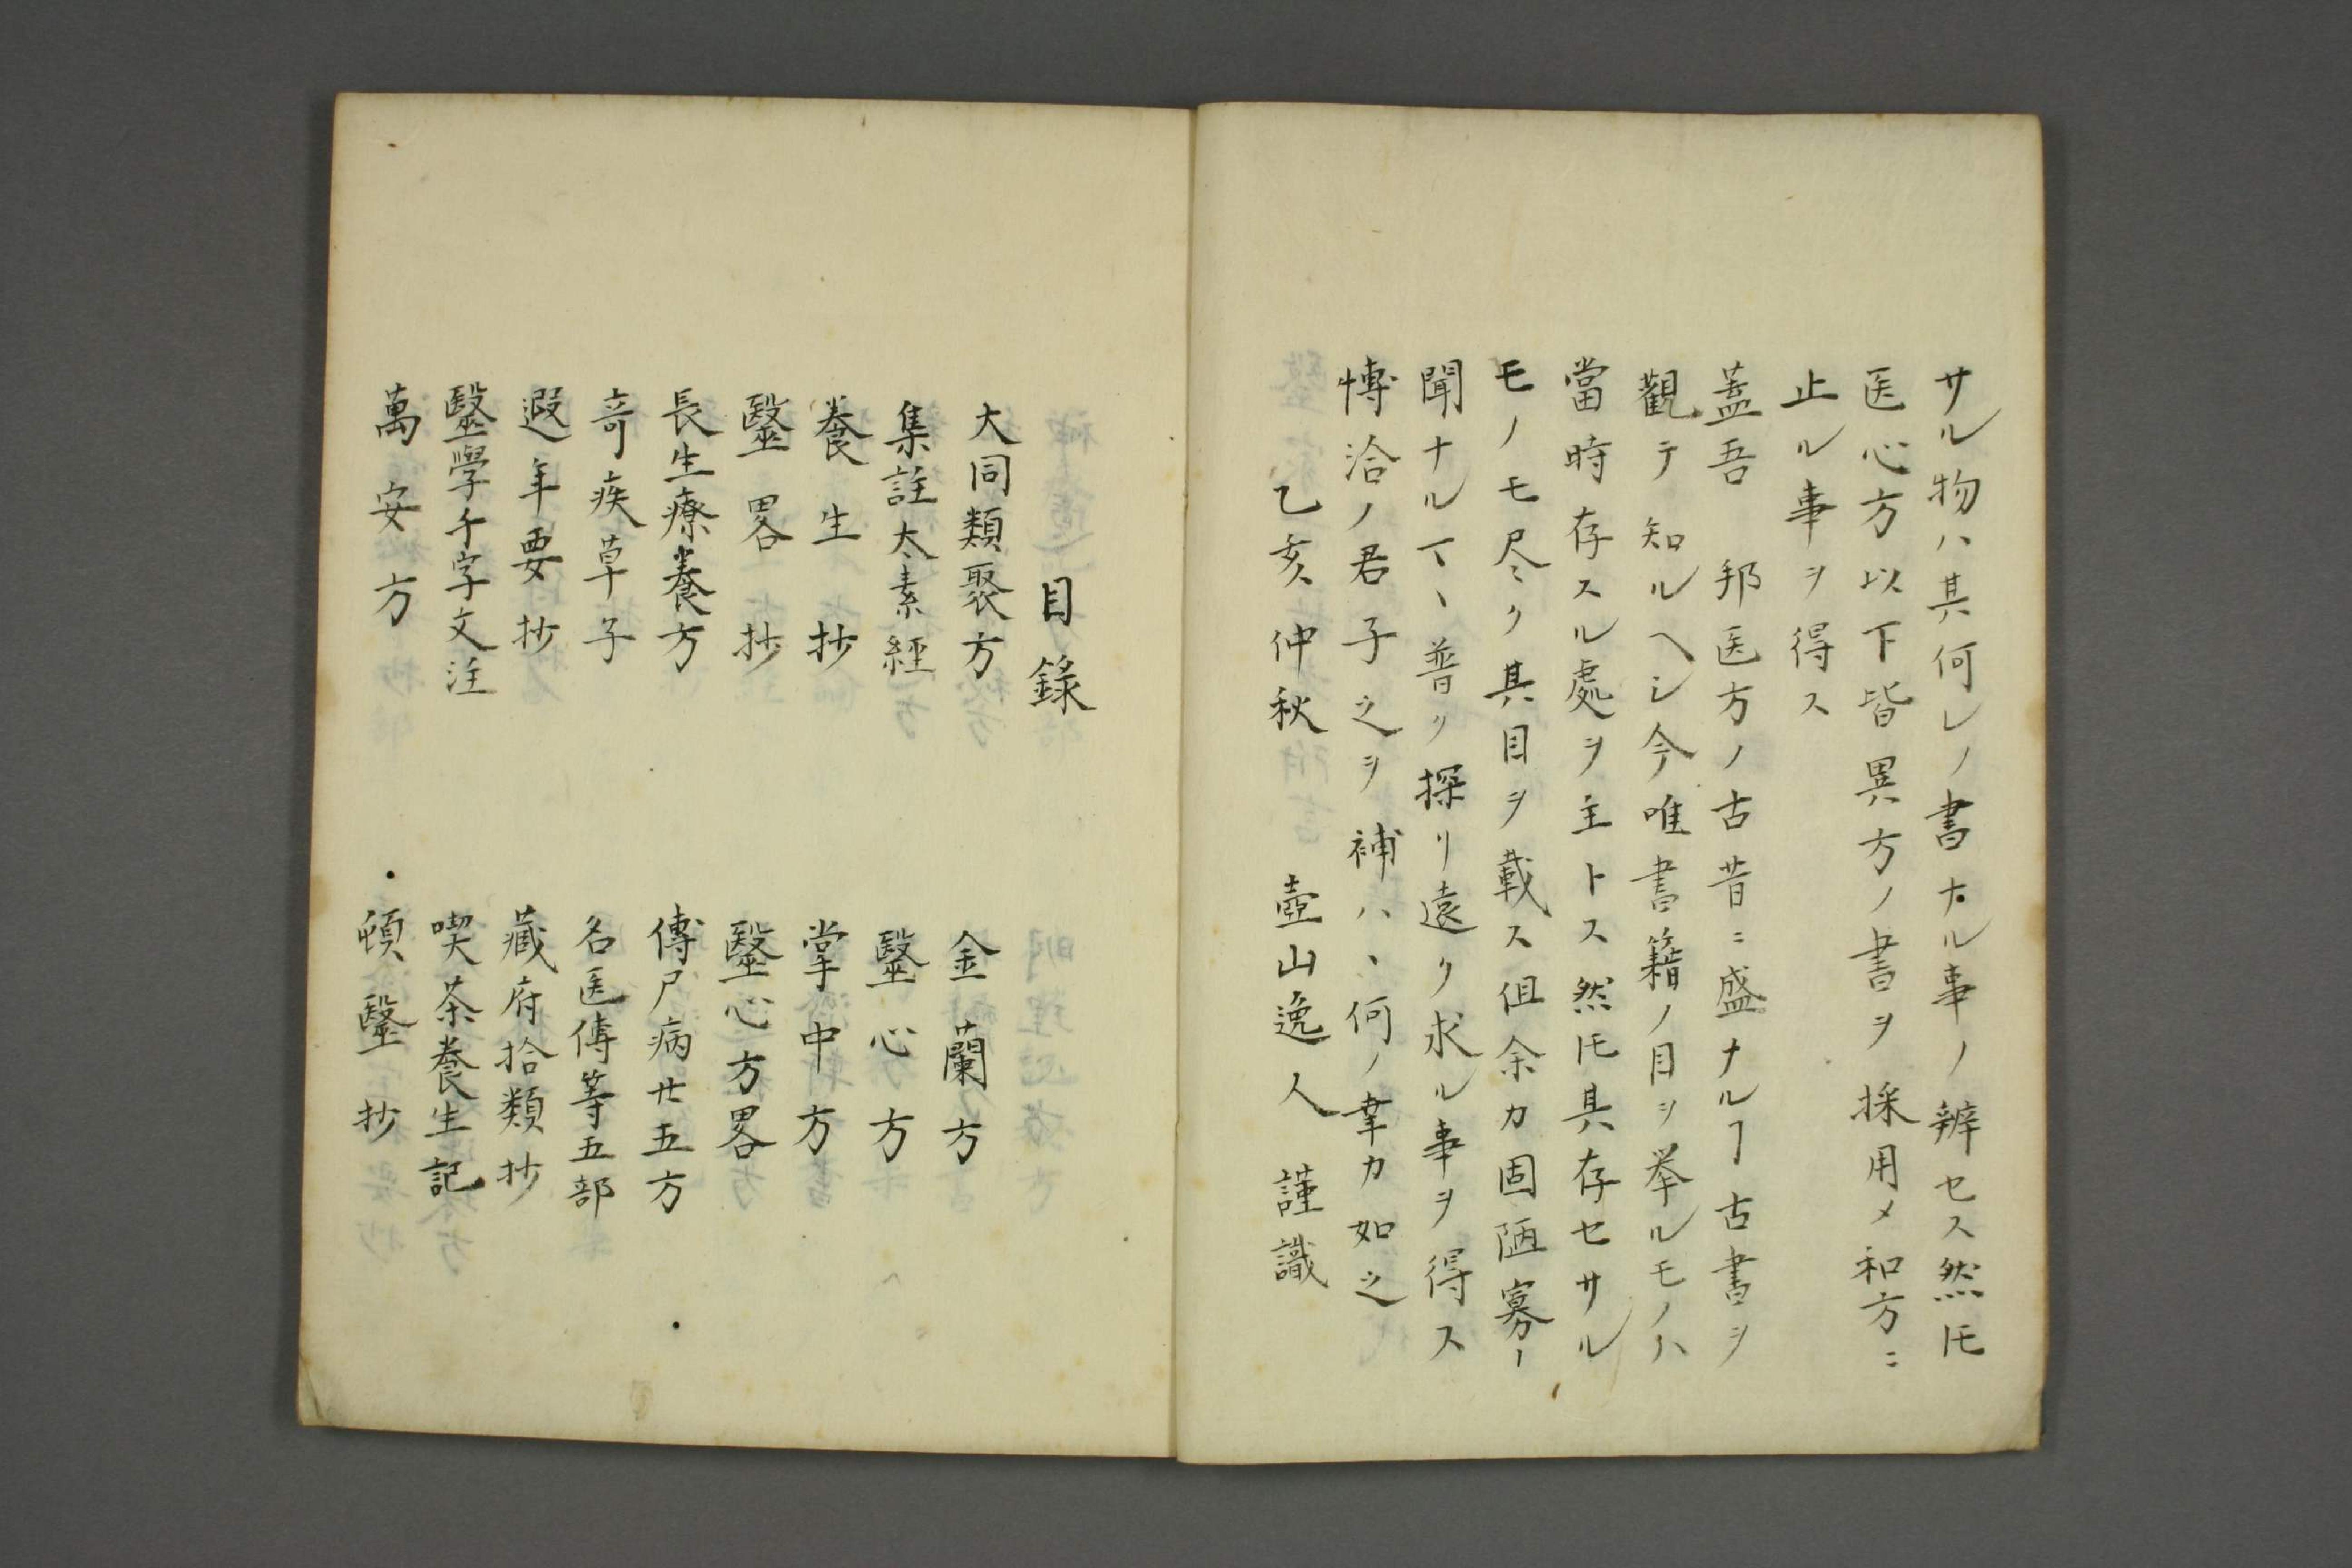 サル物ハ其何レノ書ナル事ノ辨セス然𪜈
医心方以下皆異方ノ書ヲ採用メ和方ニ
止ル事ヲ得ス
蓋吾 邦医方ノ古昔ニ盛ナルヿ古書ヲ
觀テ知ルヘシ今唯書籍ノ目ヲ挙ルモノハ
當時存スル處ヲ主トス然𪜈其存セサル
モノモ尽ク其目ヲ載ス但余カ固陋寡
聞ナルヿ、普ク探リ遠ク求ル事ヲ得ス
博洽ノ君子之ヲ補ハ、何ノ幸カ如之
乙亥仲秋 壺山逸人 謹識
目錄
大同類聚方 金蘭方
集註太素經 醫心方
養生抄 掌中方
醫畧抄 醫心方畧
長生療養方 傳尸病廿五方
奇疾草子 名医傳等五部
遐年要抄 藏府拾類抄
醫學千字文注 喫茶養生記
萬安方 頓醫抄